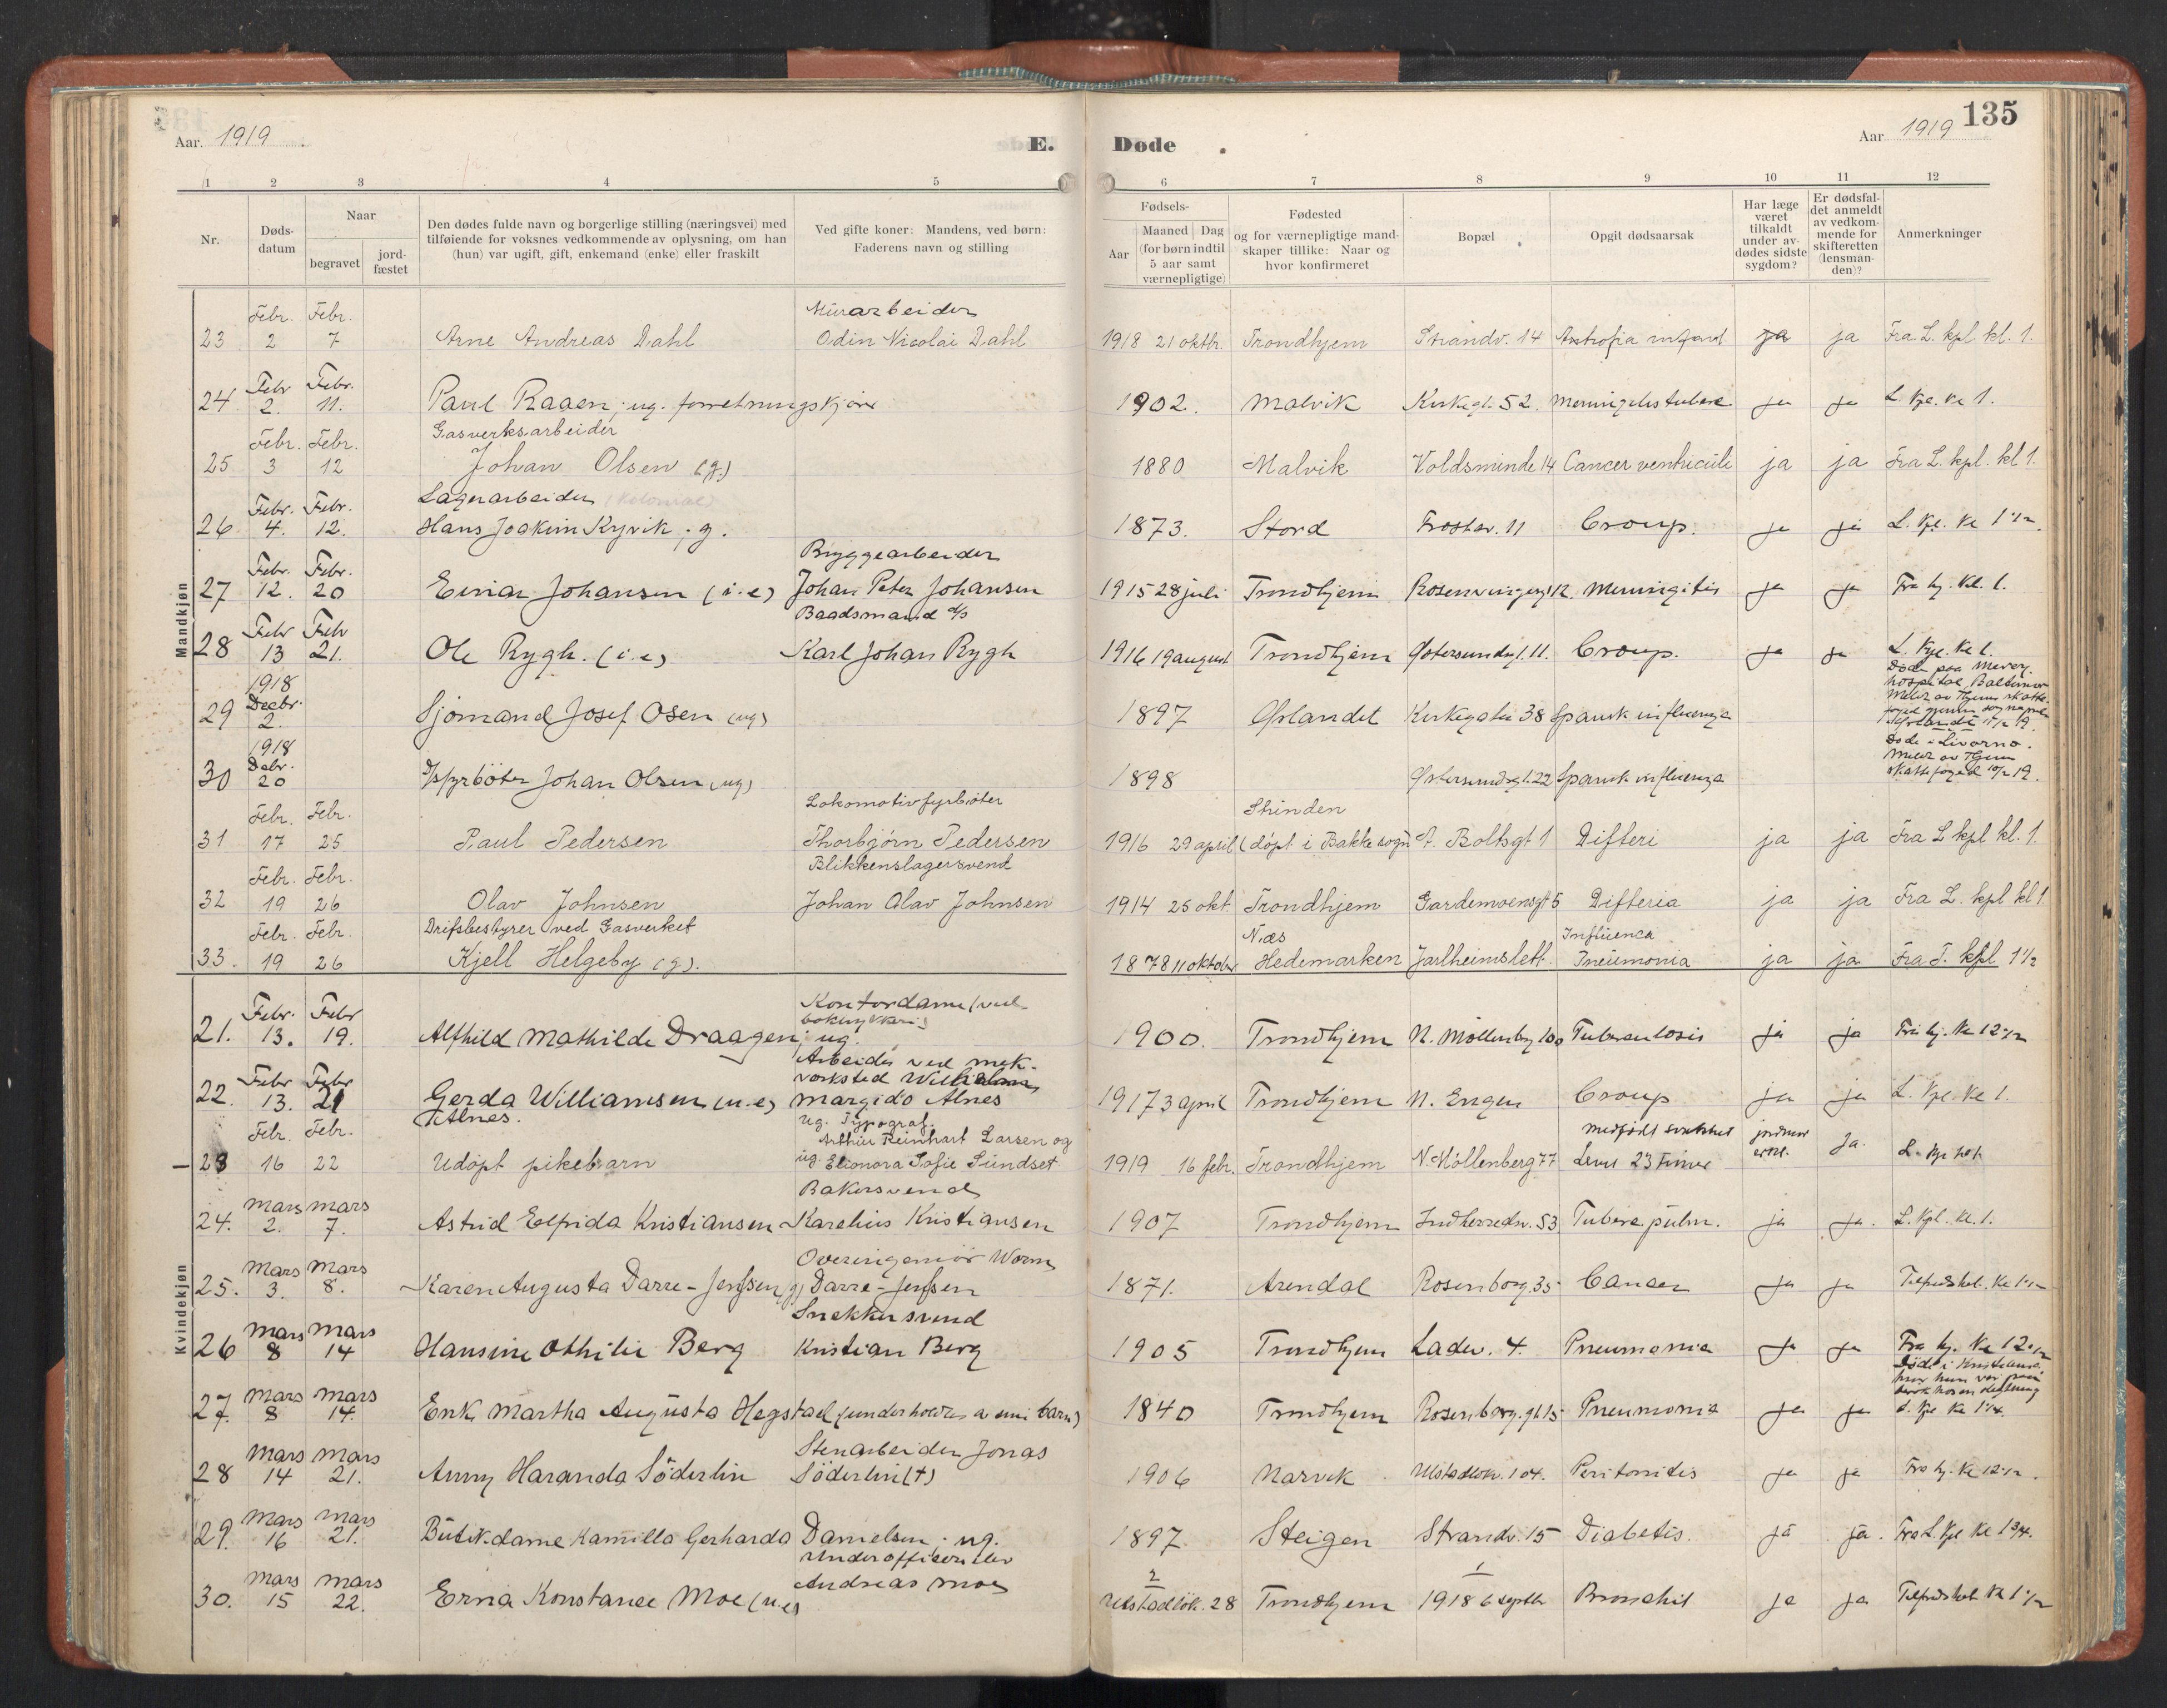 Aar 1919
E. Døde
Aar 1919
135
1 2 3 4 5 6 7 8 9 10 11 12
Nr.
Døds-
datum
Naar
begravet
jord-
fæstet
Den dødes fulde navn og borgerlige stilling (næringsvei) med
tilføiende for voksnes vedkommende av oplysning, om han
(hun) var ugift, gift, enkemand (enke) eller fraskilt
Ved gifte koner: Mandens, ved børn:
Faderens navn og stilling
Fødsels-
Aar
Maaned Dag
(for børn indtil
5 aar samt
værnepligtige)
Fødested
og for værnepligtige mand-
skaper tillike: Naar og
hvor konfirmeret
Bopæl
Opgit dødsaarsak
Har læge
været
tilkaldt
under av-
dødes sidste
sygdom?
Er dødsfal-
det anmeldt
av vedkom-
mende for
skifteretten
(lensman-
den)?
Anmerkninger
Mandkjøn
Febr. Febr. Murarbeider
23 2 7 Arne Andreas Dahl Odin Nicolai Dahl 1918 21 oktbr. Trondhjem Strandv. 14 ja ja Fra L. kpl kl. 1.
Febr Febr.
24 2. 11. Paul Raaen, ug. 1902. Malvik Kirkegt. 52. ja ja L. kpl. kl 1.
Febr. Febr. Gasverksarbeider
25 3 12 Johan Olsen (g.) 1880 Malvik Voldsminde 14 Cancer ventriculi ja ja Fra L. kpl. kl 1.
Febr. Febr. Lagerarbeider (Kolonial)
26 4. 12. Hans Joakim Kyvik, g. 1873. Stord Frostav. 11 Croup. ja ja L. kpl. kl 1 1/2.
Febr. Febr. Bryggearbeider
27 12. 20 Einar Johansen (i.e) Johan Peter Johansen 1915 28 juli Trondhjem Meningitis ja ja Fra hj. kl. 1.
Febr Febr Baadsmand d/s
28 13 21. Ole Rygh. (i.e) Karl Johan Rygh 1916 19 august Trondhjem Østersundsgt. 11. Croup. ja ja L. kpl. kl 1.
1918
Decbr.
29 2. Sjømand Josef Osen (ug) 1897 Ørlandet Kirkegaten 38 Spansk influenza Døde paa Mercy
hospital, Baltimore
1918
Debr.
30 20 D/s fyrböter Johan Olsen (ug) 1898 Østersundsgt. 22 Spansk influenza Døde i Livorno.
Meldt av Thjem
skattefoged 10/2 19.
Febr. Febr. Lokomotivfyrbøter Strinden
31 17 25 Paul Pedersen Thorbjørn Pedersen 1916 29 april (døpt i Bakke sogn) Boltsgt 1 Difteri ja ja Fra L kpl kl. 1.
Febr. Febr. Blikkenslagersvend
32 19 26 Olav Johnsen Johan Olav Johnsen 1914 25 okt. Trondhjem Gardemoensgt 5 Difteria ja ja Fra L. kpl kl 1.
Febr. Febr. Drifsbestyrer ved Gasverket Næs Influenca
33. 19 26 Kjell Helgeby (g). 1878 11 oktober Hedemarken Jarlheimslett. Pneumonia ja ja Fra T. kpl 1 1/2
Kvindekjøn
Febr. Febr Kontordame (ved
boktrykkeri)
21. 13. 19. Alfhild Mathilde Draagen, ug. 1900. Trondhjem N. Møllenberg Tuberculosis ja ja Fra hj. kl 12 1/2
Febr Febr Arbeider ved mek.
verksted Wilhelm
22. 13. 21 Gerda Williamsen (u.e) Margido Alnes 1917 3 april Trondhjem N. Engen Croup ja ja L. kpl. kl 1.
Alnes.
Febr. Febr. ug. Typograf.
Arthur Reinhart Larsen og Medfødt svakhet jordmor
23 16 22 Udøpt pikebarn ug. Elionora Sofie Sundset 1919 16 febr. Trondhjem N. Møllenberg 77 Levet 23 timer Ja. L. kpl kl 1.
Mars Mars Bakersvend
24. 2. 7. Astrid Elfrida Kristiansen Karelius Kristiansen 1907 Trondhjem Indherredsv. 53. Tuberc pulm. ja ja. L. Kpl. kl. 1.
Mars Mars Overingeniør Worm
25. 3. 8. Karen Augusta Darre-Jenssen (g) Darre-Jenssen 1871. Arendal Rosenborg. 35 Cancer ja ja Tilfredshet. kl 1 1/2
Mars Mars Snekkersvend
26 8 14 Hansine Othilie Berg Kristian Berg 1905 TrondhjemLadev. 4. Pneumonia ja ja Fra hj. kl 12 1/2
Mars Mars
27. 8 14. Enke Martha Augusta Hegstad (underholdes av sine barn) 1840 Trondhjem Rosenborg.gt. 15 Pneumonia ja ja L. kpl kl 1 1/4.
Mars Mars Stenarbeider Jonas
28 14 21. Anny Haranda Söderlin Söderlin (†) 1906 Narvik Ulstadløkv. 104. Peritonitis ja ja Fra hj. kl 12 1/2.
Mars Mars
29. 16 21. Butikdame Kamilla Gerharda Danielsen, ug. 1897. Steigen Strandv. 15 Diabetis. ja ja. Fra L. Kpl kl 1 3/4.
Mars Mars Underofficerselev 2 1
30. 15 22. Erna Konstance Moe (u.e) Andreas Moe Ulstadløk. 28 Trondhjem 1918 6 septbr Bronchit ja ja Tilfredshet kl 1 1/2